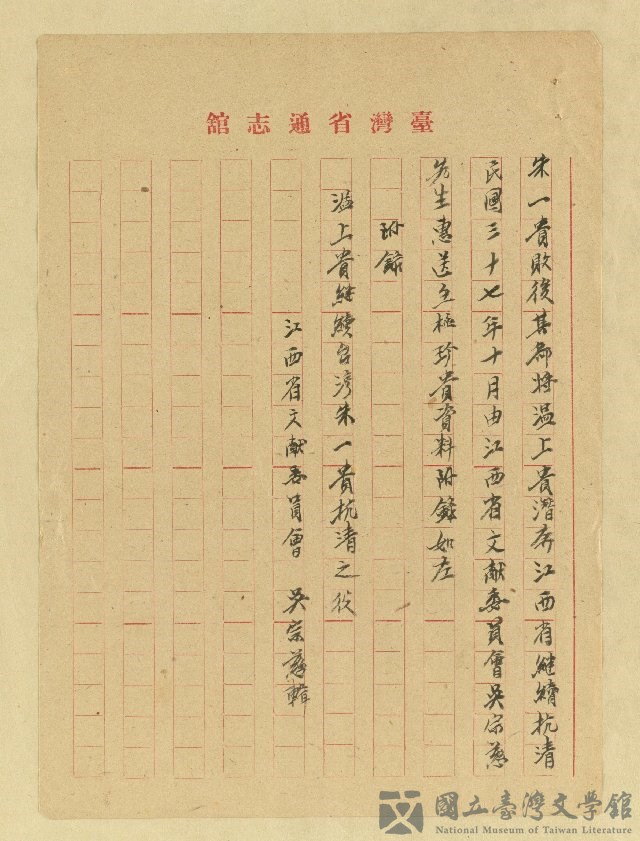 臺灣省通志舘
朱一貴敗後其部将温上貴潛奔江西省継續抗清
民國三十七年十月由江西省文献委員會吳宗慈
先生惠送至極珍貴資料附錄如左
附錄
温上貴継續台湾朱一貴抗清之役
江西省文献委員會 吳宗慈輯
國立臺灣文學館
National Museum of Taiwan Literature